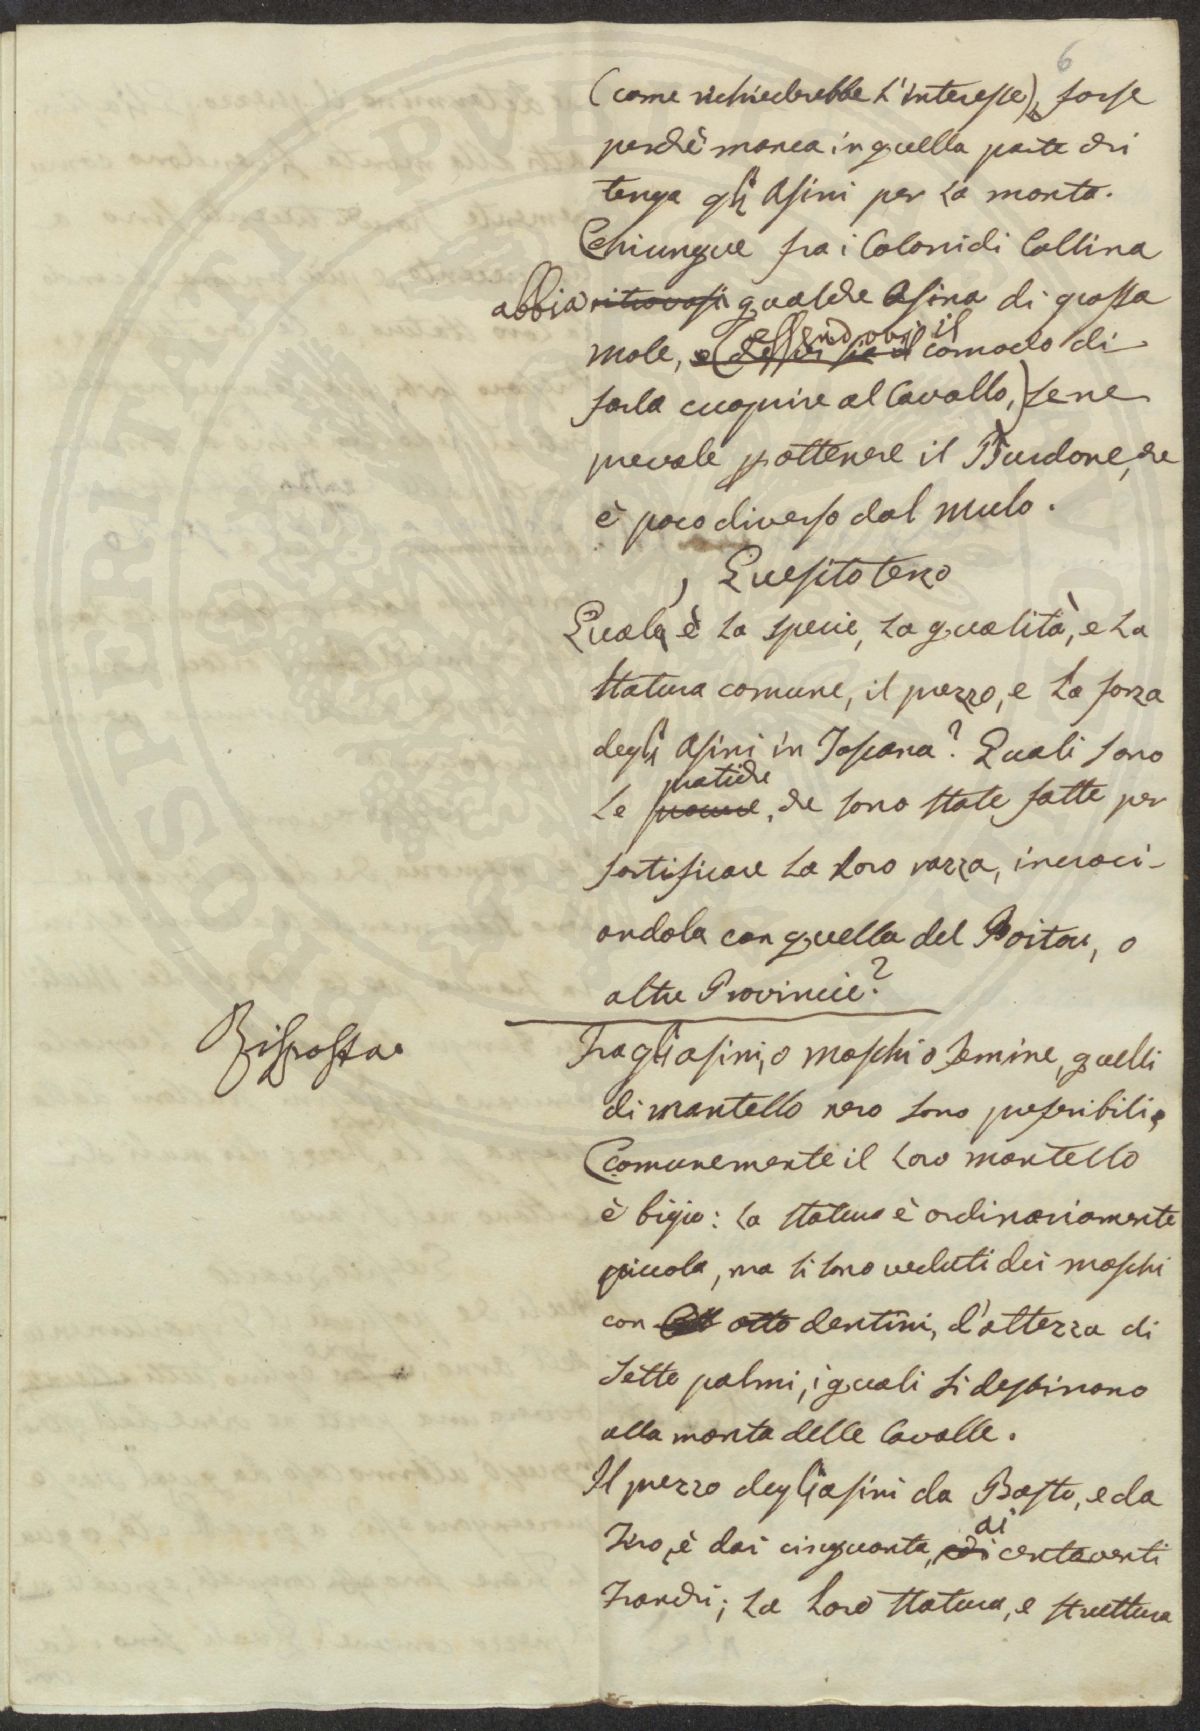 6
(come richiederebbe l'interesse), forse
perchè manca in quella parte chi
tenga gli Asini per la monta.
Chiunque fra i Coloni di Collina
abbia ritrovasi qualche Asina di grossa
mole, essendovi il comodo di
farla cuoprire al Cavallo,) se ne
prevale p ottenere il Burdone, che
è poco diverso dal mulo.
Quesito terzo
Quale è la specie, la qualità, e la
statura comune, il prezzo, e la forza
degli Asini in Toscana? Quali sono
pratiche
le prove, che sono state fatte per
fortificare la loro razza, incroci-
andola con quella del Poitou, o
altre Provincie?
Risposta
Fra gli asini, o maschi o femine, quelli
di mantello nero sono preferibili.
Comunemente il loro mantello
è bigio: la statura è ordinariamente
piccola, ma si sono veduti dei maschi
con otto dentini, d'altezza di
sette palmi, i quali si destinano
alla monta delle Cavalle.
Il prezzo degli asini da Basto, e da
ai
Tiro, è dai cinquanta, centoventi
Franchi; la loro statura, e struttura